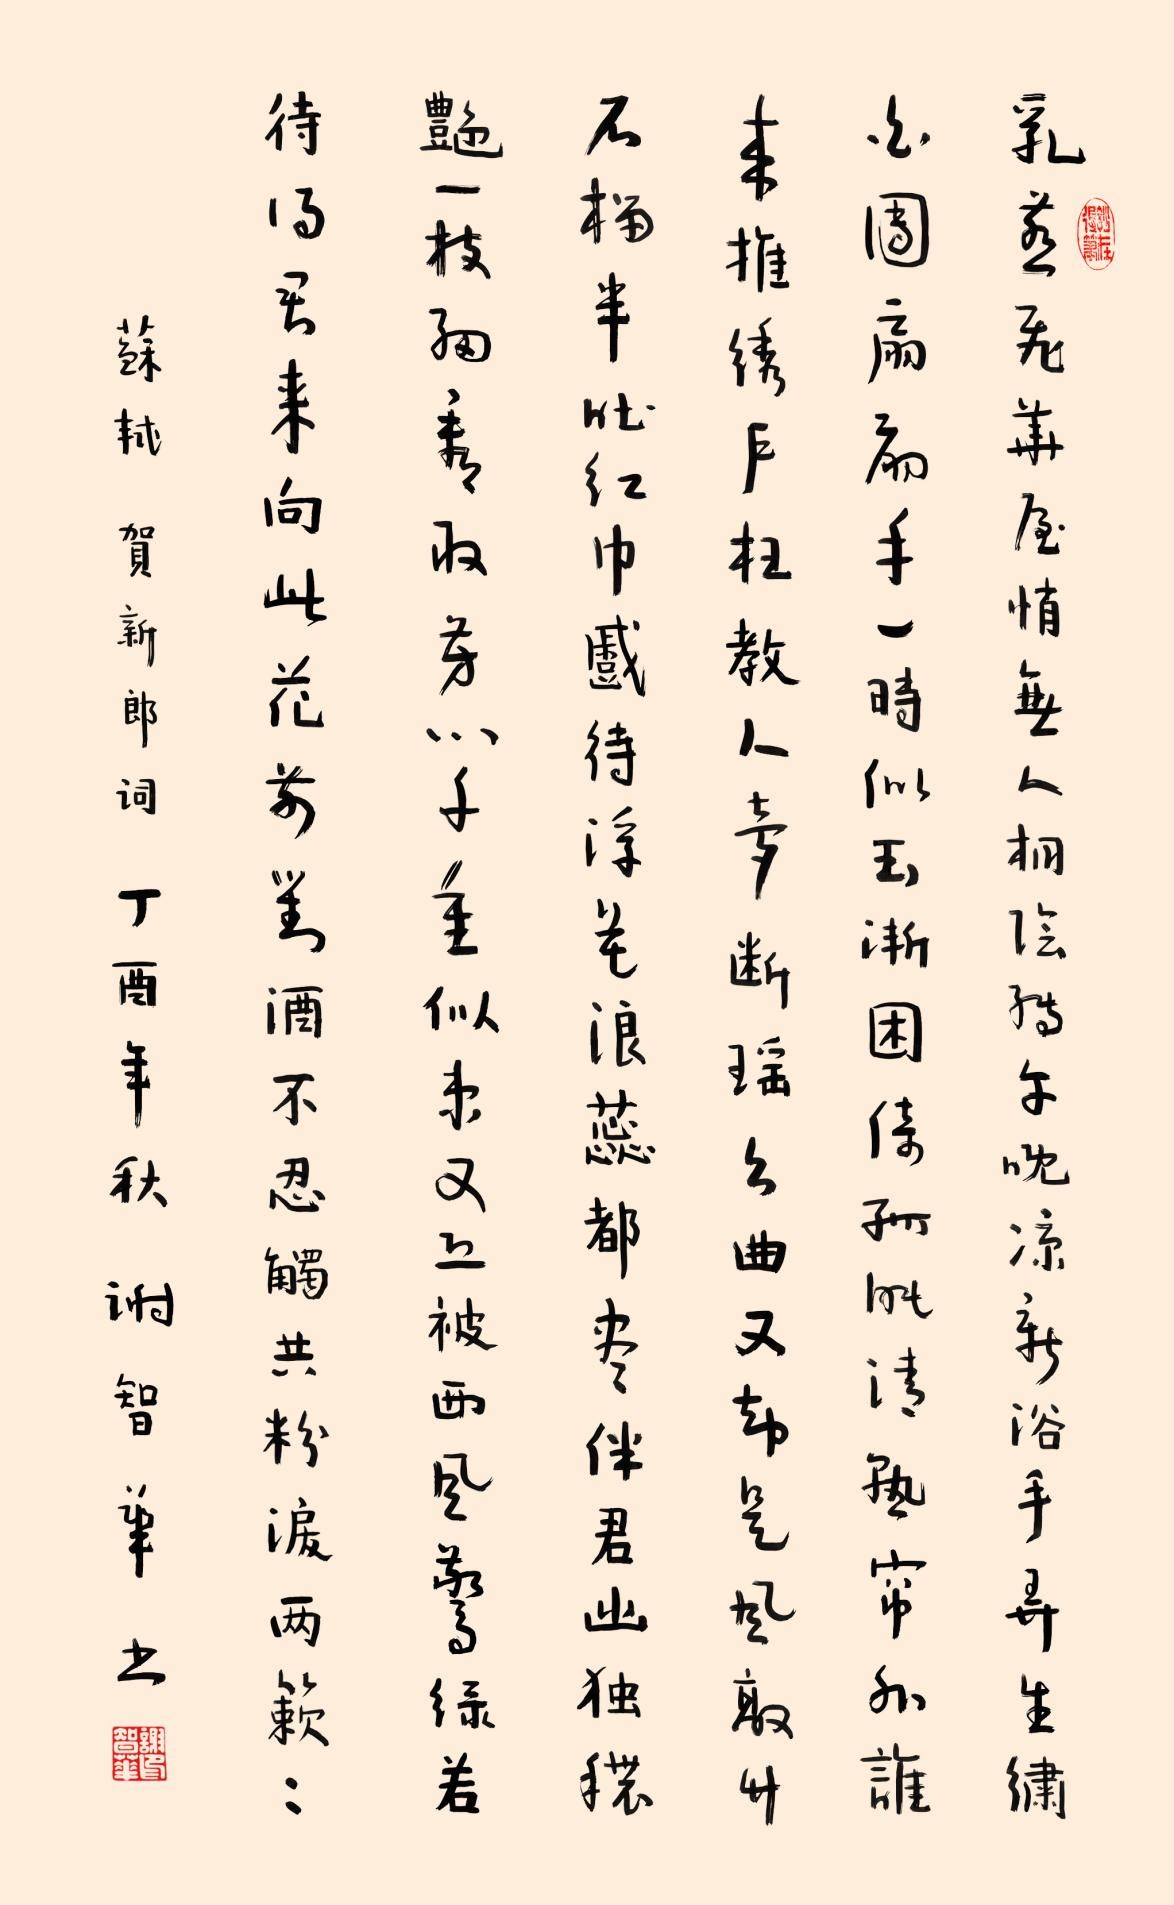 乳燕飛華屋悄無人桐陰轉午晚凉新浴手弄生繡
白團扇扇手一時似玉漸困倚孤眠清熟帘外誰
来推绣户枉教人夢断瑶台曲又却是風敲竹
石榴半吐红巾蹙待浮花浪蕊都盡伴君幽独穠
豔一枝細看取芳心千重似束又恐被西風驚绿若
待得君来向此花前對酒不忍觸共粉淚两簌:
蘇軾 賀新郎词 丁酉年秋 謝智華书
謝智華印